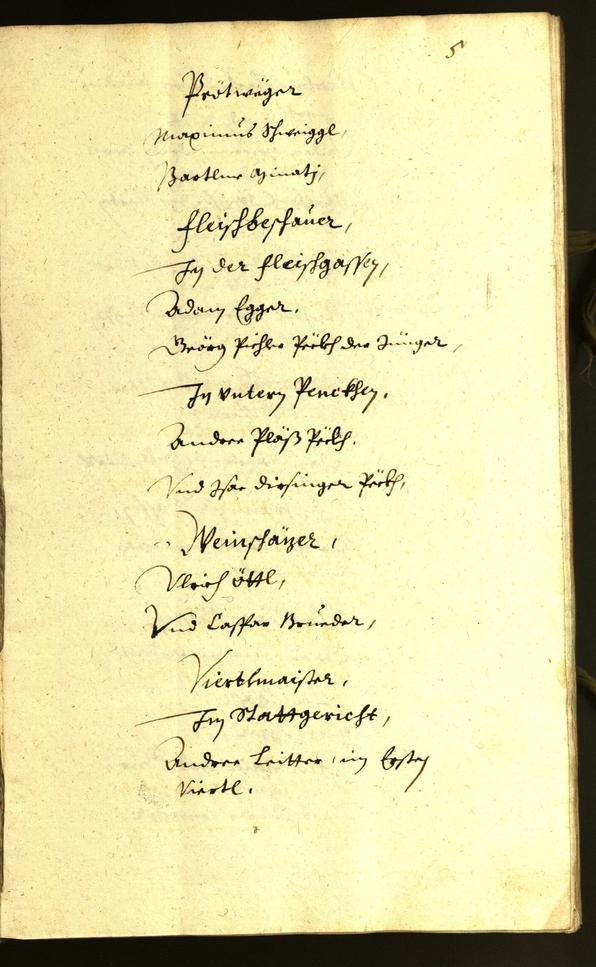 5
Brötweger
Maximus Schweiggl,
Bartlme Aginatj,
Fleischbeschauer,
In der Fleischgassen,
Adam Egger.
Georg Pichler Pëckh der Jünger,
In untern Penckhen.
Andree Pläß Pëckh.
Und Isac dirsinger Pëckh,
Weinschäzer,
Ulrich öttl,
Und Caspar Brueder,
Viertlmaister,
Im Stattgericht,
Andree Leitter im Ersten
Viertl.